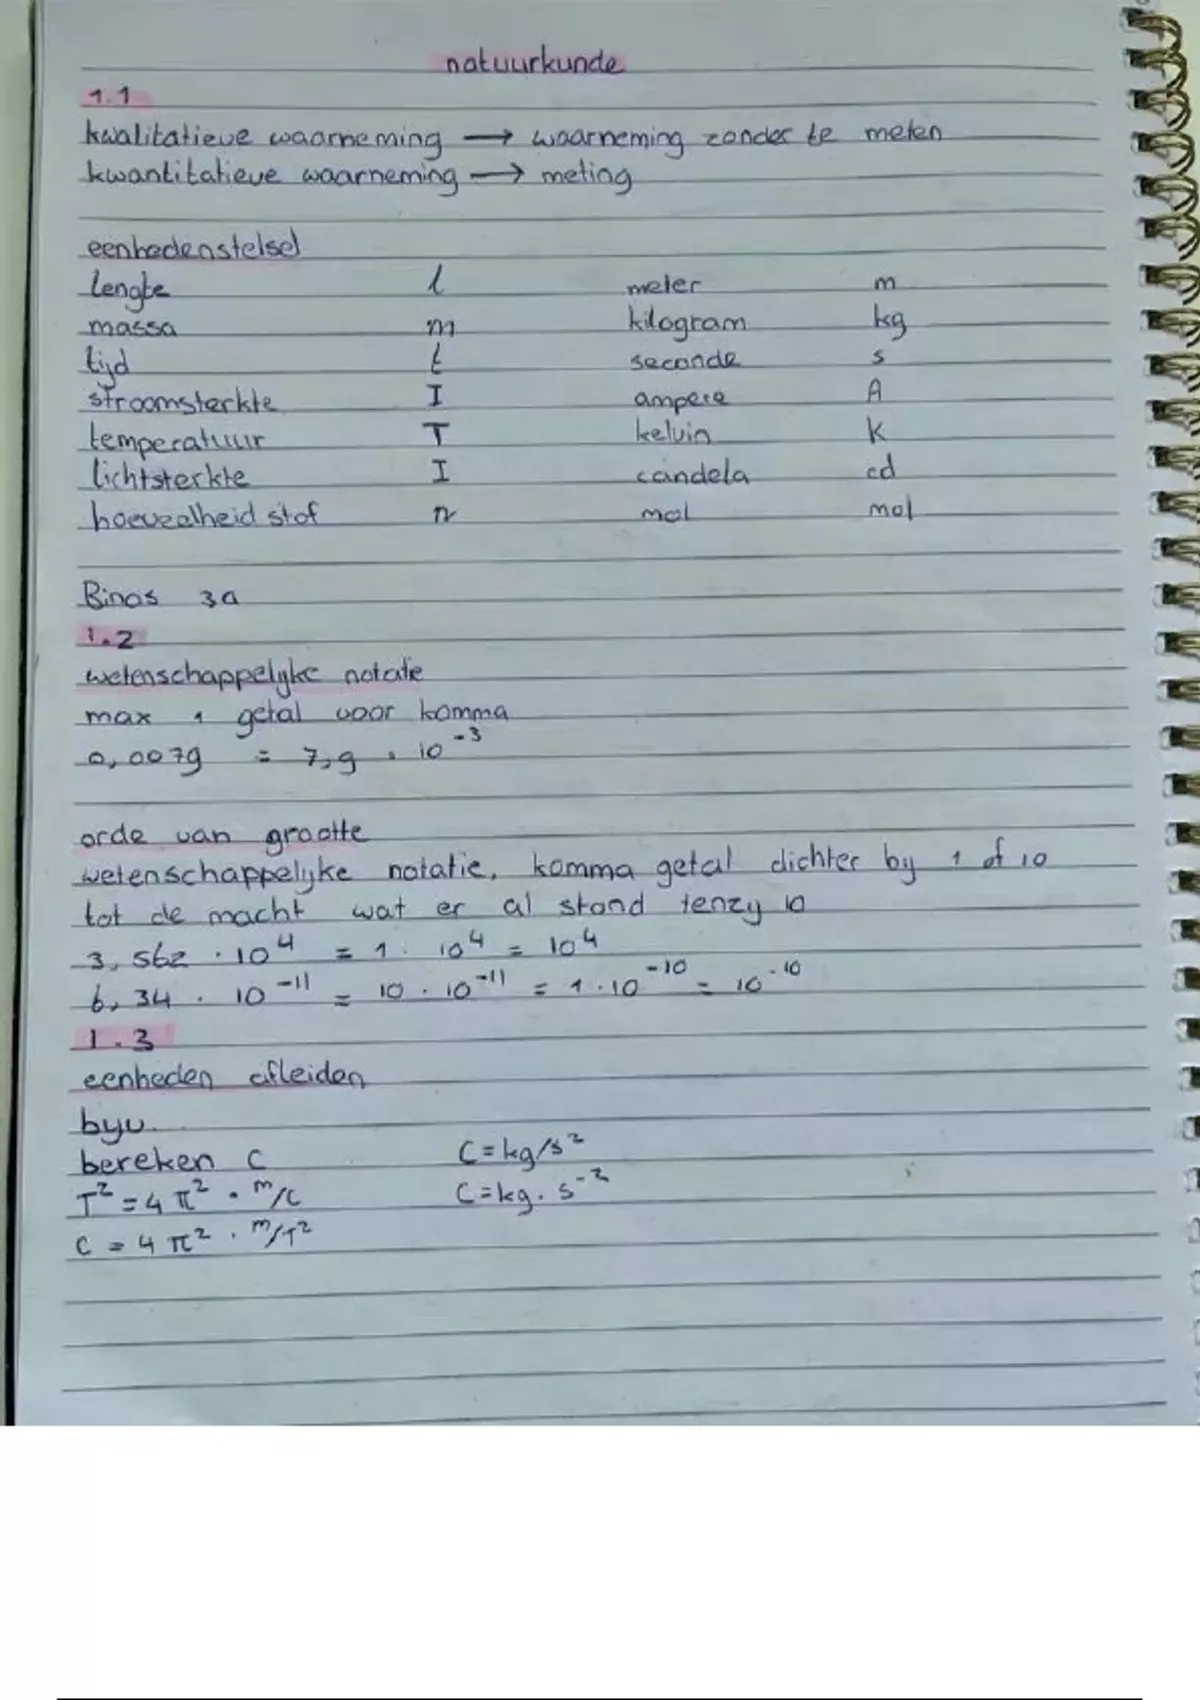 natuurkunde
1.1
kwalitatieve waarneming → waarneming zonder te meten
kwantitatieve waarneming → meting
eenhedenstelsel
lengte l meter m
massa m kilogram kg
tijd t seconde s
stroomsterkte I ampere A
temperatuur T kelvin K
lichtsterkte I candela cd
hoeveelheid stof n mol mol
Binas 3a
1.2
wetenschappelyke notatie
max 1 getal voor komma
0,0079 = 7,9 · 10⁻³
orde van grootte
wetenschappelyke notatie, komma getal dichter by 1 of 10
tot de macht wat er al stond tenzy 10
3,562 · 10⁴ = 1 · 10⁴ = 10⁴
6,34 · 10⁻¹¹ = 10 · 10⁻¹¹ = 1 · 10⁻¹⁰ = 10⁻¹⁰
1.3
eenheden afleiden
byv.
bereken C C = kg/s²
T² = 4π² · m/C C = kg · s⁻²
C = 4π² · m/T²